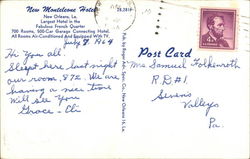 New Monteleone Hotel
New Orleans, La.
Largest Hotel in the
Fabulous French Quarter
700 Rooms, 500-Car Garage Connecting Hotel,
All Rooms Air-Conditioned And Equipped With TV.
July 7, 1964
Hi You all
Slept here last night
our room, 872. We are
having a nice time
Will See You
Grace - Cli
Post Card
Mrs Samuel Folkenroth
R.D#1
Sevens
Valleys
Pa.